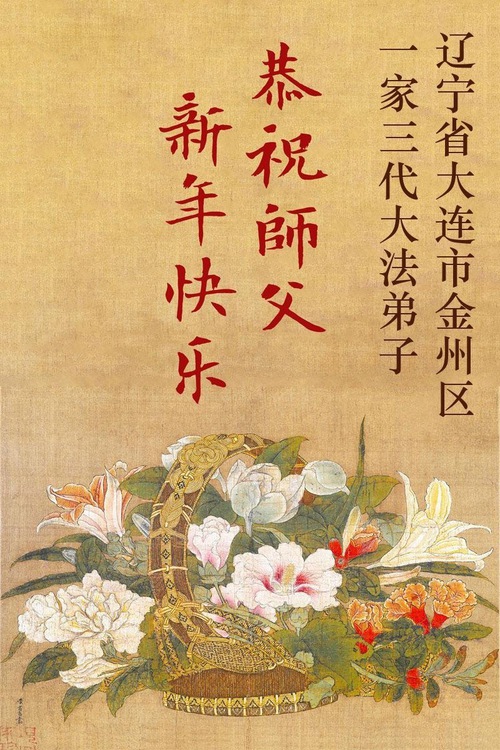 辽宁省大连市金州区
一家三代大法弟子
恭祝師父
新年快乐